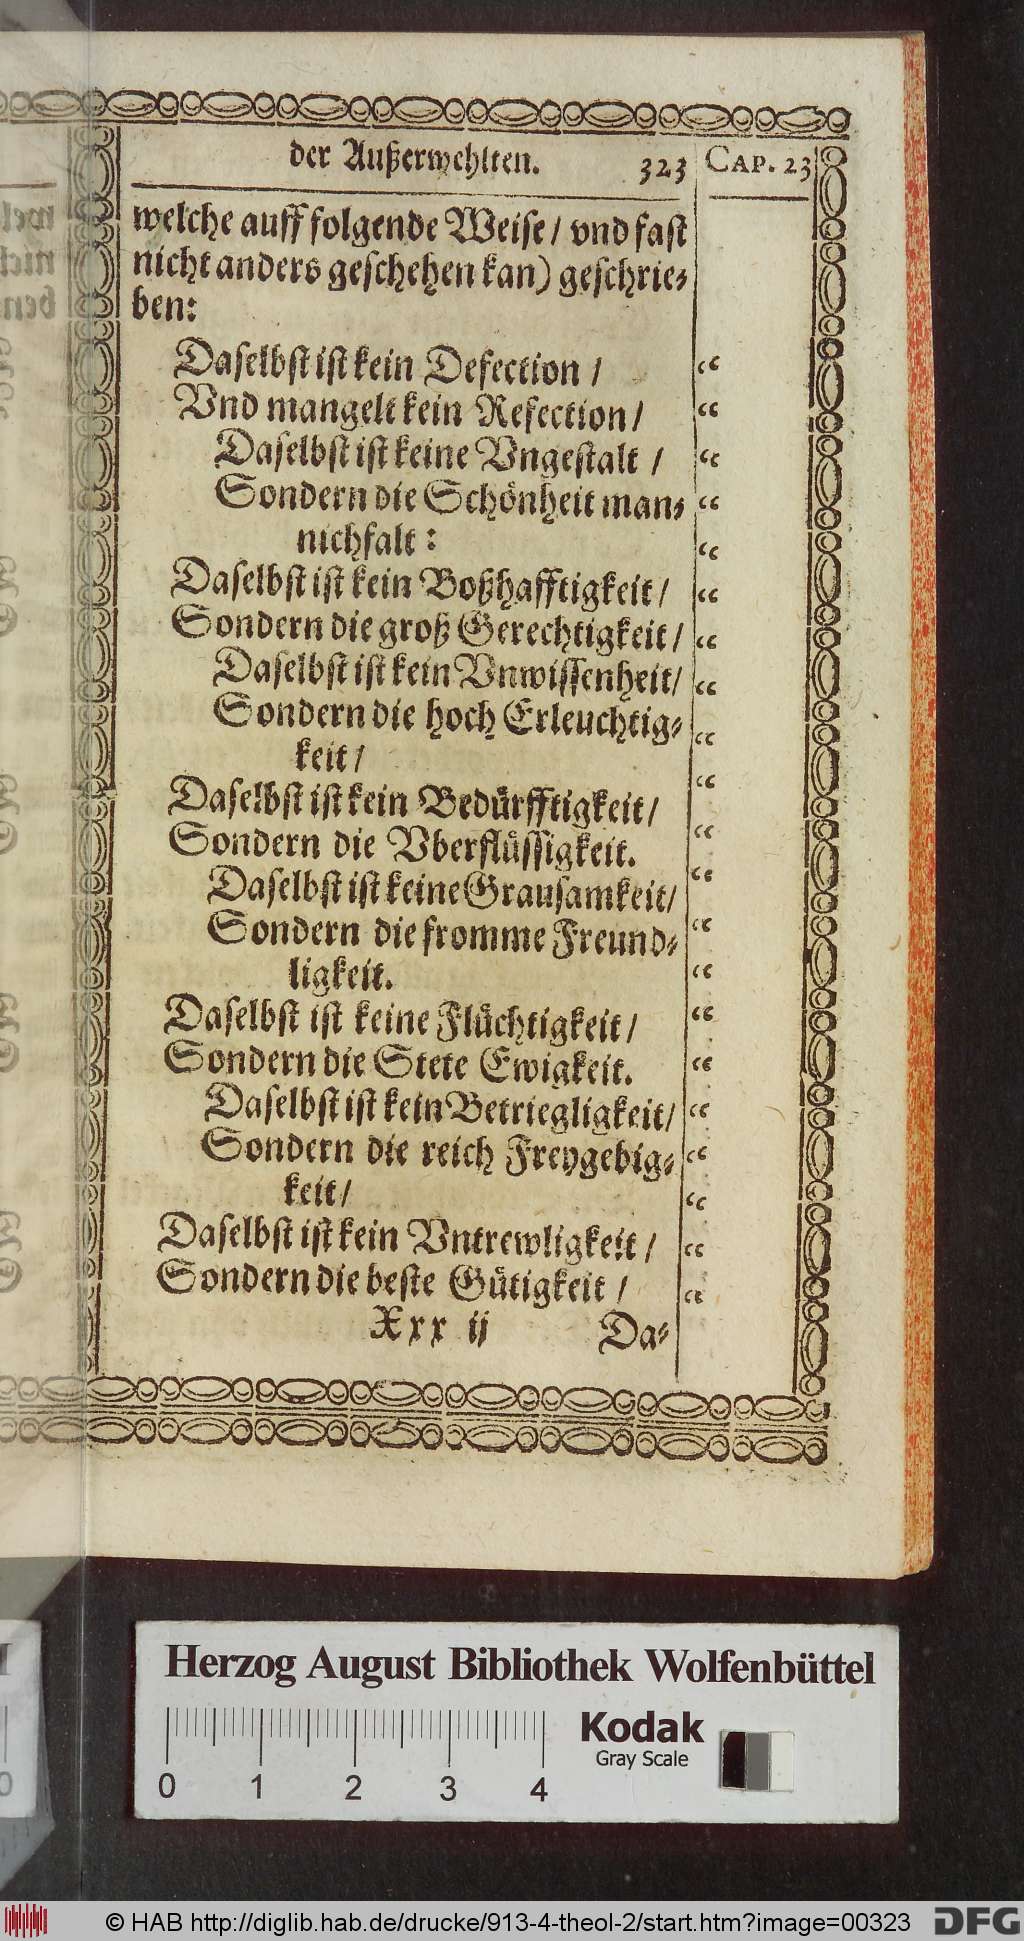 der Außerwehlten. 323 CAP. 23
welche auff folgende Weise / vnd fast
nicht anders geschehen kan) geschrie-
ben:
Daselbst ist kein Defection /
Vnd mangelt kein Refection /
Daselbst ist keine Vngestalt /
Sondern die Schönheit man-
nichfalt :
Daselbst ist kein Boßhafftigkeit /
Sondern die groß Gerechtigkeit /
Daselbst ist kein Vnwissenheit /
Sondern die hoch Erleuchtig-
keit /
Daselbst ist kein Bedürfftigkeit /
Sondern die Vberflüssigkeit.
Daselbst ist keine Grausamkeit /
Sondern die fromme Freund-
ligkeit.
Daselbst ist keine Flüchtigkeit /
Sondern die Stete Ewigkeit.
Daselbst ist kein Betriegligkeit /
Sondern die reich Freygebig-
keit /
Daselbst ist kein Vntrewligkeit /
Sondern die beste Gütigkeit /
Xxx ij Da-
Herzog August Bibliothek Wolfenbüttel
Kodak
Gray Scale
0 1 2 3 4
© HAB http://diglib.hab.de/drucke/913-4-theol-2/start.htm?image=00323 DFG